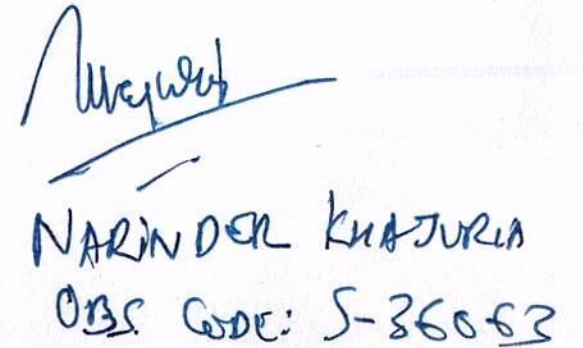 NARINDER KHAJURIA
OBS. CODE: S-36063